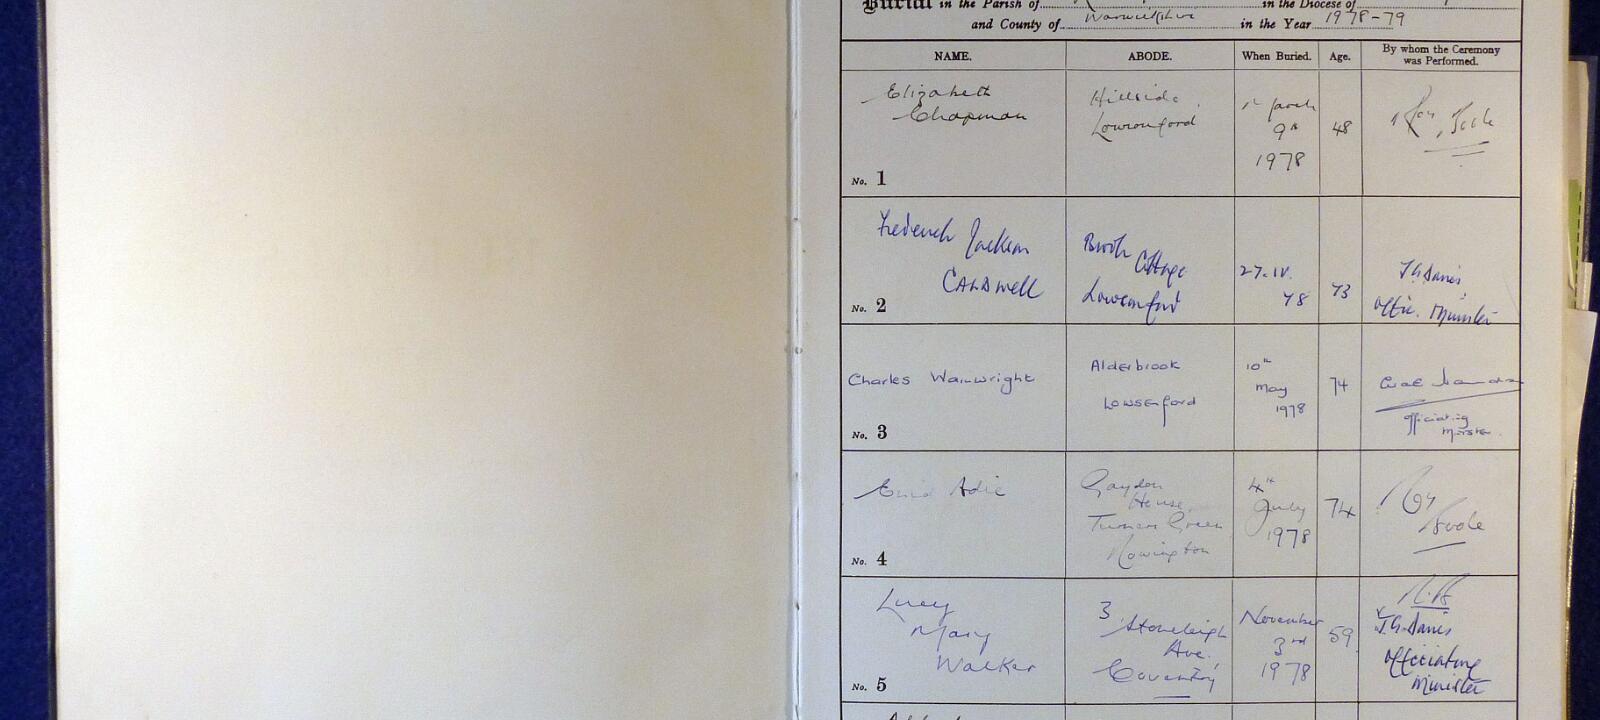 Burial in the Parish of in the Diocese of
and County of Warwickshire in the Year 1978-79
NAME. ABODE. When Buried. Age. By whom the Ceremony was Performed.
Elizabeth
Chapman
Hillside,
Lowsonford
March
9th
1978
48
Roy Poole
No. 1
Frederick Jackson
CALDWELL
Brook
Cottage
Lowsonford
27.IV.
78
73
J G Davis,
Offic. Minister
No. 2
Charles Wainwright
Alderbrook
Lowsenford
10th
May
1978
74
officiating
Minister.
No. 3
Enid Adie
Gaydon
House,
Turners Green
Rowington
4th
July
1978
74
Roy
Poole
No. 4
Lucy
Mary
Walker
3
Stoneleigh
Ave.,
Coventry
November
3rd
1978
59
J.G. Davis
Officiating
Minister
No. 5